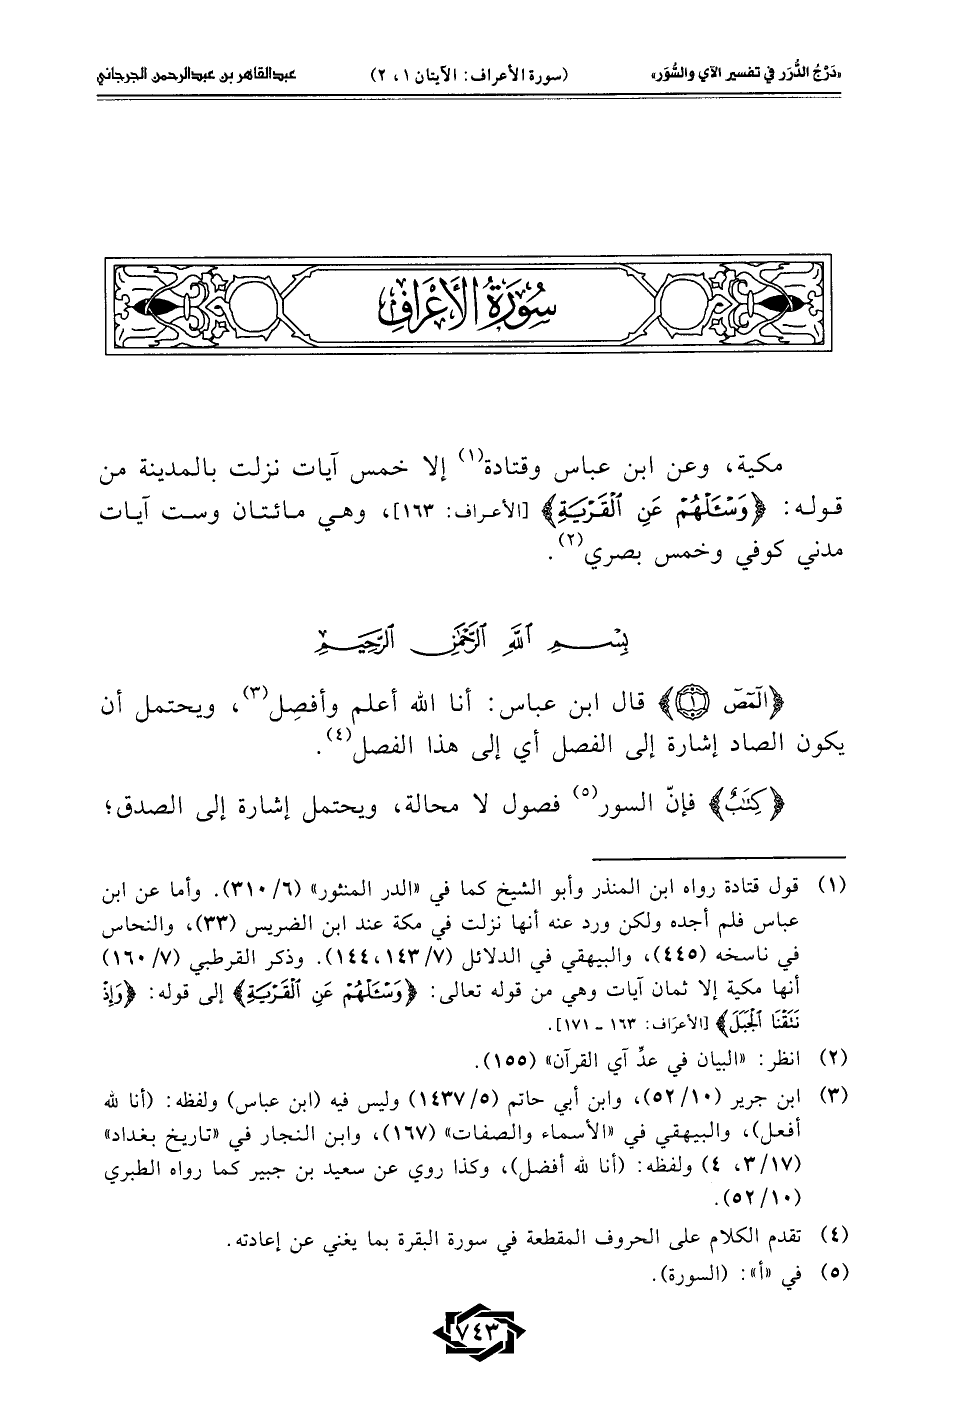 «دَرْجُ الدُّرَر في تفسير الآي والسُّوَر» (سورة الأعراف: الآيتان ١، ٢) عبدالقاهر بن عبدالرحمن الجرجاني
سُورَةُ الأَعْرَافِ
مكية، وعن ابن عباس وقتادة(١) إلا خمس آيات نزلت بالمدينة من
قوله: ﴿وَسْئَلْهُمْ عَنِ ٱلْقَرْيَةِ﴾ [الأعراف: ١٦٣]، وهي مائتان وست آيات
مدني كوفي وخمس بصري(٢).
بِسْمِ ٱللَّهِ ٱلرَّحْمَٰنِ ٱلرَّحِيمِ
﴿الٓمٓصٓ ١﴾ قال ابن عباس: أنا الله أعلم وأفصِل(٣)، ويحتمل أن
يكون الصاد إشارة إلى الفصل أي إلى هذا الفصل(٤).
﴿كِتَٰبٌ﴾ فإنّ السور(٥) فصول لا محالة، ويحتمل إشارة إلى الصدق؛
(١) قول قتادة رواه ابن المنذر وأبو الشيخ كما في «الدر المنثور» (٣١٠/٦). وأما عن ابن
عباس فلم أجده ولكن ورد عنه أنها نزلت في مكة عند ابن الضريس (٣٣)، والنحاس
في ناسخه (٤٤٥)، والبيهقي في الدلائل (١٤٣/٧، ١٤٤). وذكر القرطبي (١٦٠/٧)
أنها مكية إلا ثمان آيات وهي من قوله تعالى: ﴿وَسْئَلْهُمْ عَنِ ٱلْقَرْيَةِ﴾ إلى قوله: ﴿وَإِذْ
نَتَقْنَا ٱلْجَبَلَ﴾ [الأعرَاف: ١٦٣ - ١٧١].
(٢) انظر: «البيان في عدِّ آي القرآن» (١٥٥).
(٣) ابن جرير (٥٢/١٠)، وابن أبي حاتم (١٤٣٧/٥) وليس فيه (ابن عباس) ولفظه: (أنا لله
أفعل)، والبيهقي في «الأسماء والصفات» (١٦٧)، وابن النجار في «تاريخ بغداد»
(٣/١٧، ٤) ولفظه: (أنا لله أفضل)، وكذا روي عن سعيد بن جبير كما رواه الطبري
(٥٢/١٠).
(٤) تقدم الكلام على الحروف المقطعة في سورة البقرة بما يغني عن إعادته.
(٥) في «أ»: (السورة).
٧٤٣